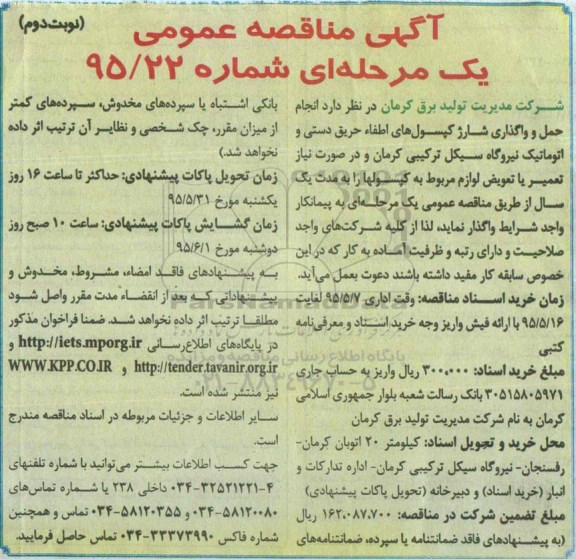 آگهی مناقصه عمومی
یک مرحله‌ای شماره ۹۵/۲۲
(نوبت‌دوم)
شرکت مدیریت تولید برق کرمان در نظر دارد انجام
حمل و واگذاری شارژ کپسول‌های اطفاء حریق دستی و
اتوماتیک نیروگاه سیکل ترکیبی کرمان و در صورت نیاز
تعمیر یا تعویض لوازم مربوط به کپسولها را به مدت یک
سال از طریق مناقصه عمومی یک مرحله‌ای به پیمانکار
واجد شرایط واگذار نماید، لذا از کلیه شرکت‌های واجد
صلاحیت و دارای رتبه و ظرفیت آماده به کار که در این
خصوص سابقه کار مفید داشته باشند دعوت بعمل می‌آید.
زمان خرید اسناد مناقصه: وقت اداری ۹۵/۵/۷ لغایت
۹۵/۵/۱۶ با ارائه فیش واریز وجه خرید اسناد و معرفی‌نامه
کتبی
مبلغ خرید اسناد: ۳۰۰،۰۰۰ ریال واریز به حساب جاری
۳۰۵۱۵۸۰۵۹۷۱ بانک رسالت شعبه بلوار جمهوری اسلامی
کرمان به نام شرکت مدیریت تولید برق کرمان
محل خرید و تحویل اسناد: کیلومتر ۲۰ اتوبان کرمان-
رفسنجان- نیروگاه سیکل ترکیبی کرمان- اداره تدارکات و
انبار (خرید اسناد) و دبیرخانه (تحویل پاکات پیشنهادی)
مبلغ تضمین شرکت در مناقصه: ۱۶۲،۰۸۷،۷۰۰ ریال
(به پیشنهادهای فاقد ضمانتنامه یا سپرده، ضمانتنامه‌های
بانکی اشتباه یا سپرده‌های مخدوش، سپرده‌های کمتر
از میزان مقرر، چک شخصی و نظایر آن ترتیب اثر داده
نخواهد شد.)
زمان تحویل پاکات پیشنهادی: حداکثر تا ساعت ۱۶ روز
یکشنبه مورخ ۹۵/۵/۳۱
زمان گشایش پاکات پیشنهادی: ساعت ۱۰ صبح روز
دوشنبه مورخ ۹۵/۶/۱
به پیشنهادهای فاقد امضاء، مشروط، مخدوش و
پیشنهاداتی که بعد از انقضاء مدت مقرر واصل شود
مطلقا ترتیب اثر داده نخواهد شد. ضمنا فراخوان مذکور
در پایگاه‌های اطلاع‌رسانی http://iets.mporg.ir و
http://tender.tavanir.org.ir و WWW.KPP.CO.IR
نیز منتشر شده است.
سایر اطلاعات و جزئیات مربوطه در اسناد مناقصه مندرج
است.
جهت کسب اطلاعات بیشتر می‌توانید با شماره تلفنهای
۰۳۴-۳۲۵۲۱۲۲۱-۴ داخلی ۲۳۸ یا شماره تماس‌های
۰۳۴-۵۸۱۲۰۰۸۰ و ۰۳۴-۵۸۱۲۰۳۵۵ تماس و همچنین
شماره فاکس ۰۳۴-۳۳۳۷۳۹۹۰ تماس حاصل فرمایید.
پایگاه اطلاع رسانی مناقصه و مزایده
۰۲۱-۸۸۳۴۹۶۷۰-۵